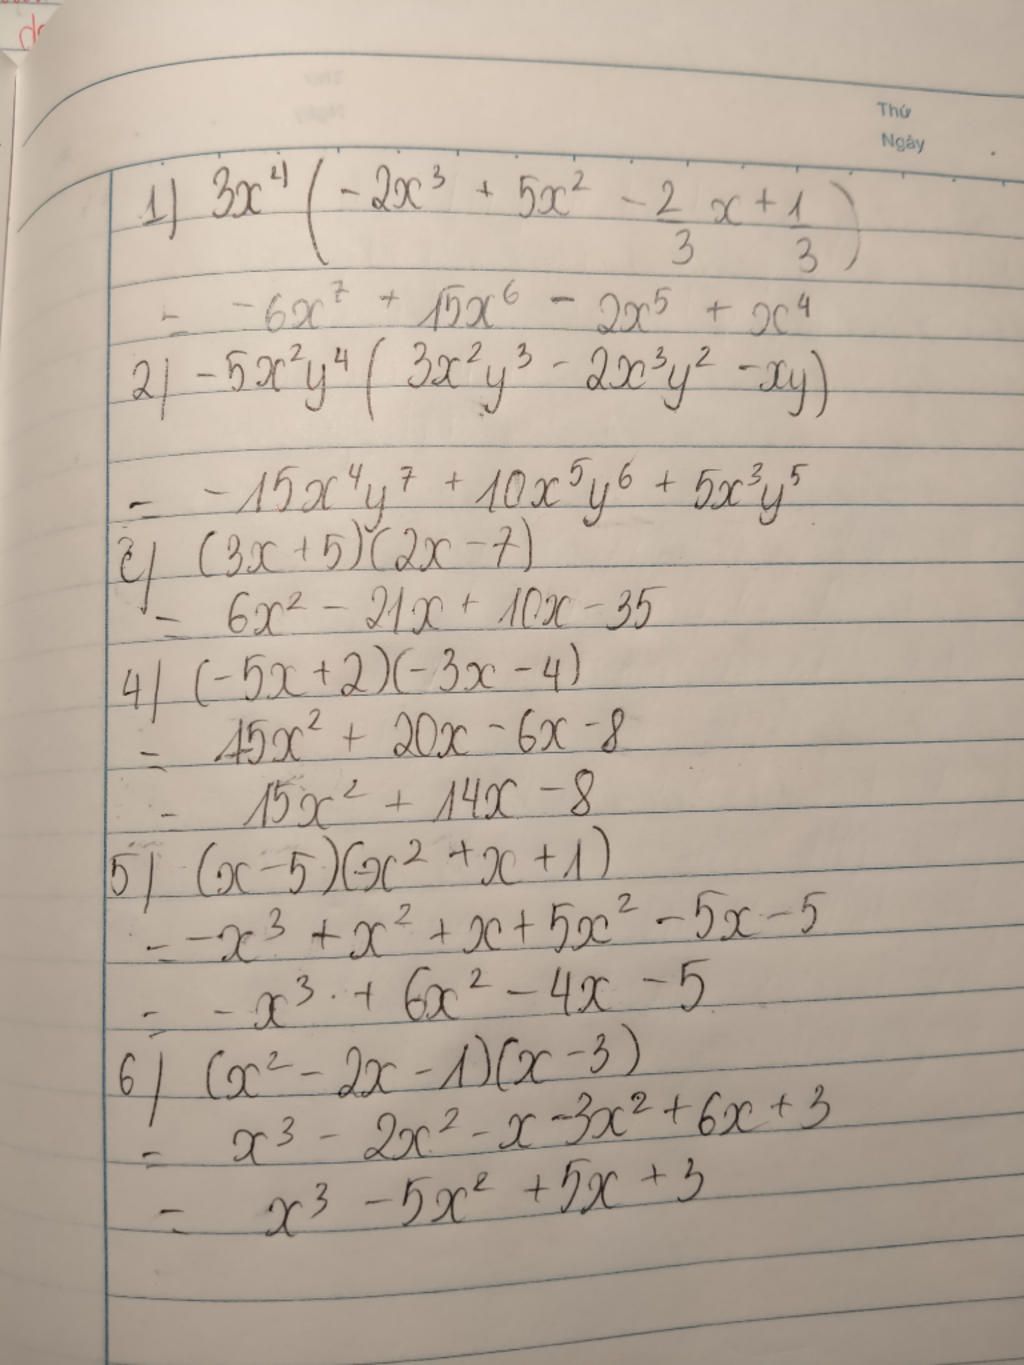 Thứ
Ngày
1) 3x⁴ ( -2x³ + 5x² - 2/3 x + 1/3 )
= -6x⁷ + 15x⁶ - 2x⁵ + x⁴
2) -5x²y⁴ ( 3x²y³ - 2x³y² - xy)
= -15x⁴y⁷ + 10x⁵y⁶ + 5x³y⁵
3) (3x + 5)(2x - 7)
= 6x² - 21x + 10x - 35
4) (-5x + 2)(-3x - 4)
= 15x² + 20x - 6x - 8
= 15x² + 14x - 8
5) (x - 5)(-x² + x + 1)
= -x³ + x² + x + 5x² - 5x - 5
= -x³ + 6x² - 4x - 5
6) (x² - 2x - 1)(x - 3)
= x³ - 2x² - x - 3x² + 6x + 3
= x³ - 5x² + 5x + 3